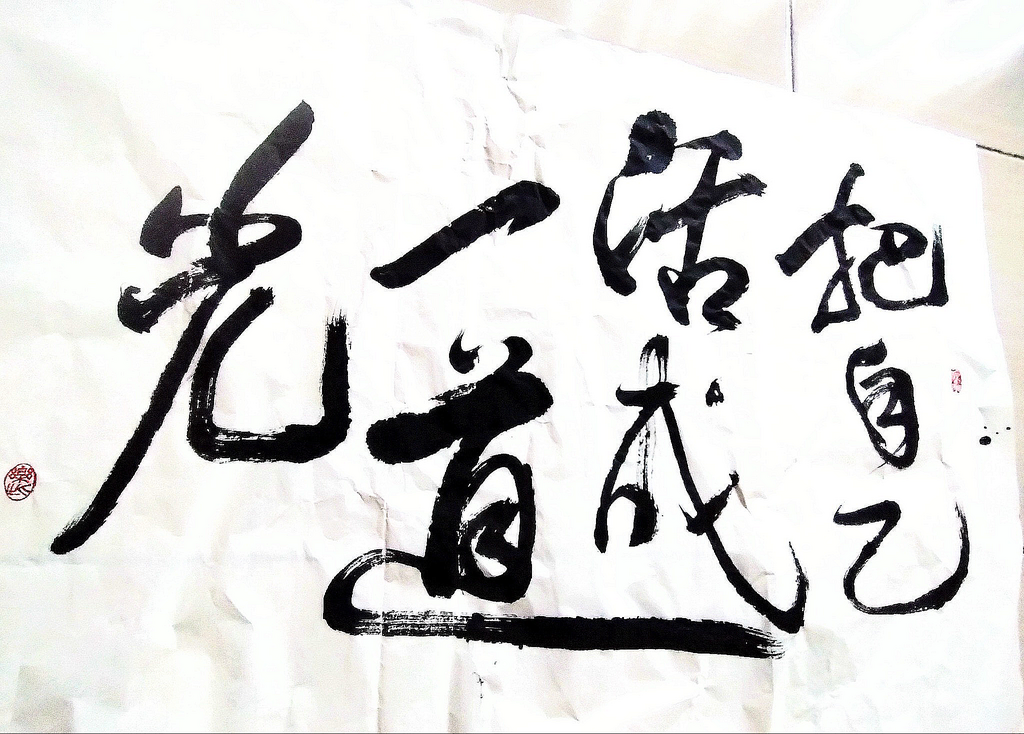 把自己
活成
一道
光